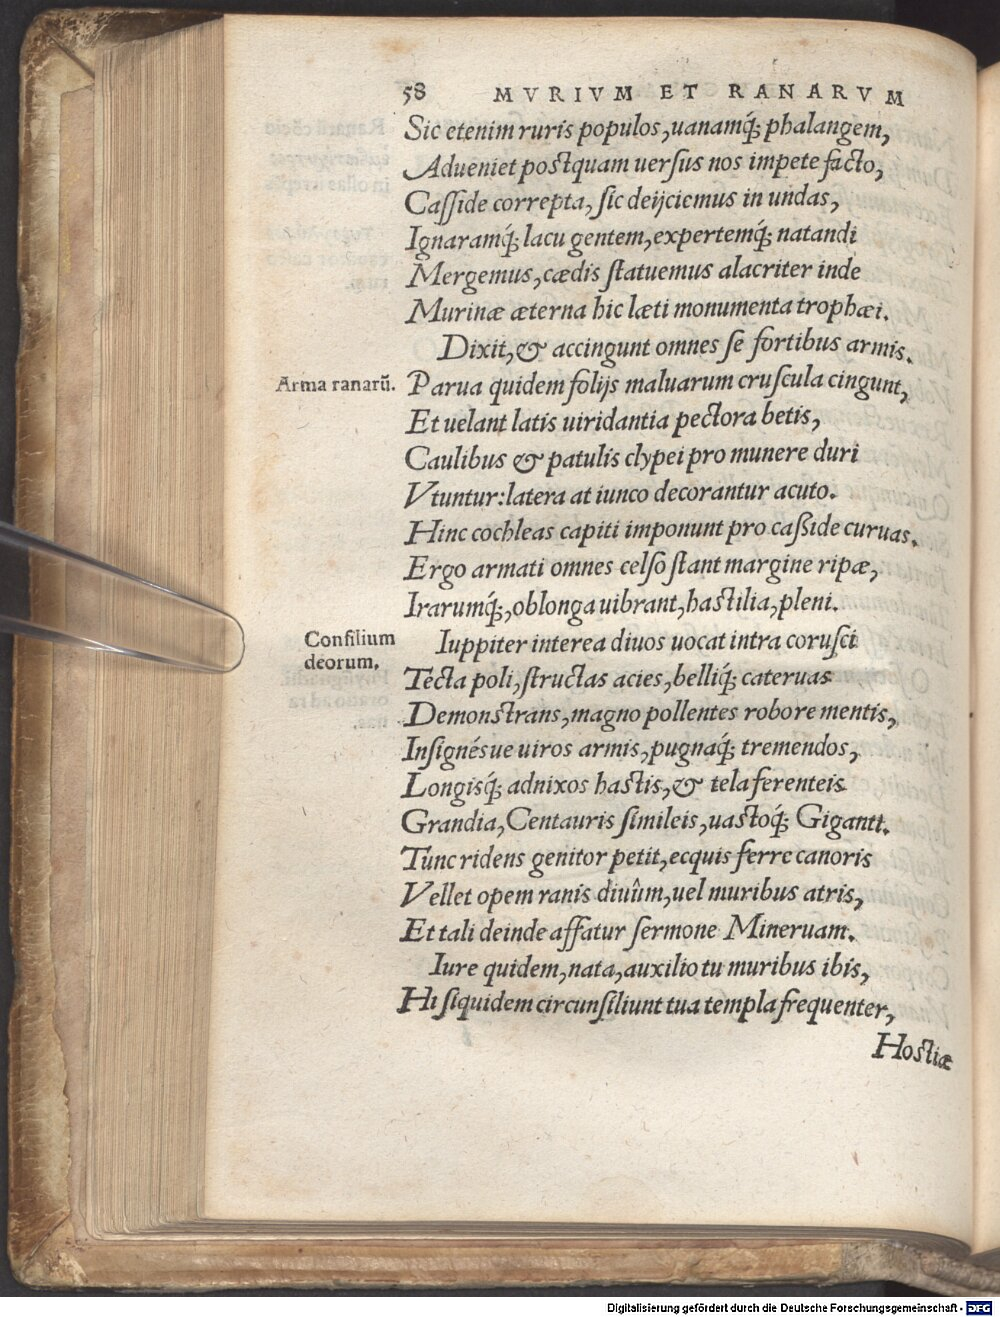 58 MVRIVM ET RANARVM
Sic etenim ruris populos, uanamq́; phalangem,
Adueniet postquam uersus nos impete facto,
Casside correpta, sic deijciemus in undas,
Ignaramq́; lacu gentem, expertemq́; natandi
Mergemus, cædis statuemus alacriter inde
Murinæ æterna hic læti monumenta trophæi.
Dixit, & accingunt omnes se fortibus armis.
Arma ranarū. Parua quidem folijs maluarum cruscula cingunt,
Et uelant latis uiridantia pectora betis,
Caulibus & patulis clypei pro munere duri
Vtuntur: latera at iunco decorantur acuto.
Hinc cochleas capiti imponunt pro casside curuas.
Ergo armati omnes celso stant margine ripæ,
Irarumq́;, oblonga uibrant, hastilia, pleni.
Consilium deorum. Iuppiter interea diuos uocat intra corusci
Tecta poli, structas acies, belliq́; cateruas
Demonstrans, magno pollentes robore mentis,
Insignésue uiros armis, pugnaq́; tremendos,
Longisq́; adnixos hastis, & tela ferenteis
Grandia, Centauris simileis, uastoq́; Giganti.
Tunc ridens genitor petit, ecquis ferre canoris
Vellet opem ranis diuûm, uel muribus atris,
Et tali deinde affatur sermone Mineruam.
Iure quidem, nata, auxilio tu muribus ibis,
Hi siquidem circunsiliunt tua templa frequenter,
Hostiæ
Digitalisierung gefördert durch die Deutsche Forschungsgemeinschaft - DFG